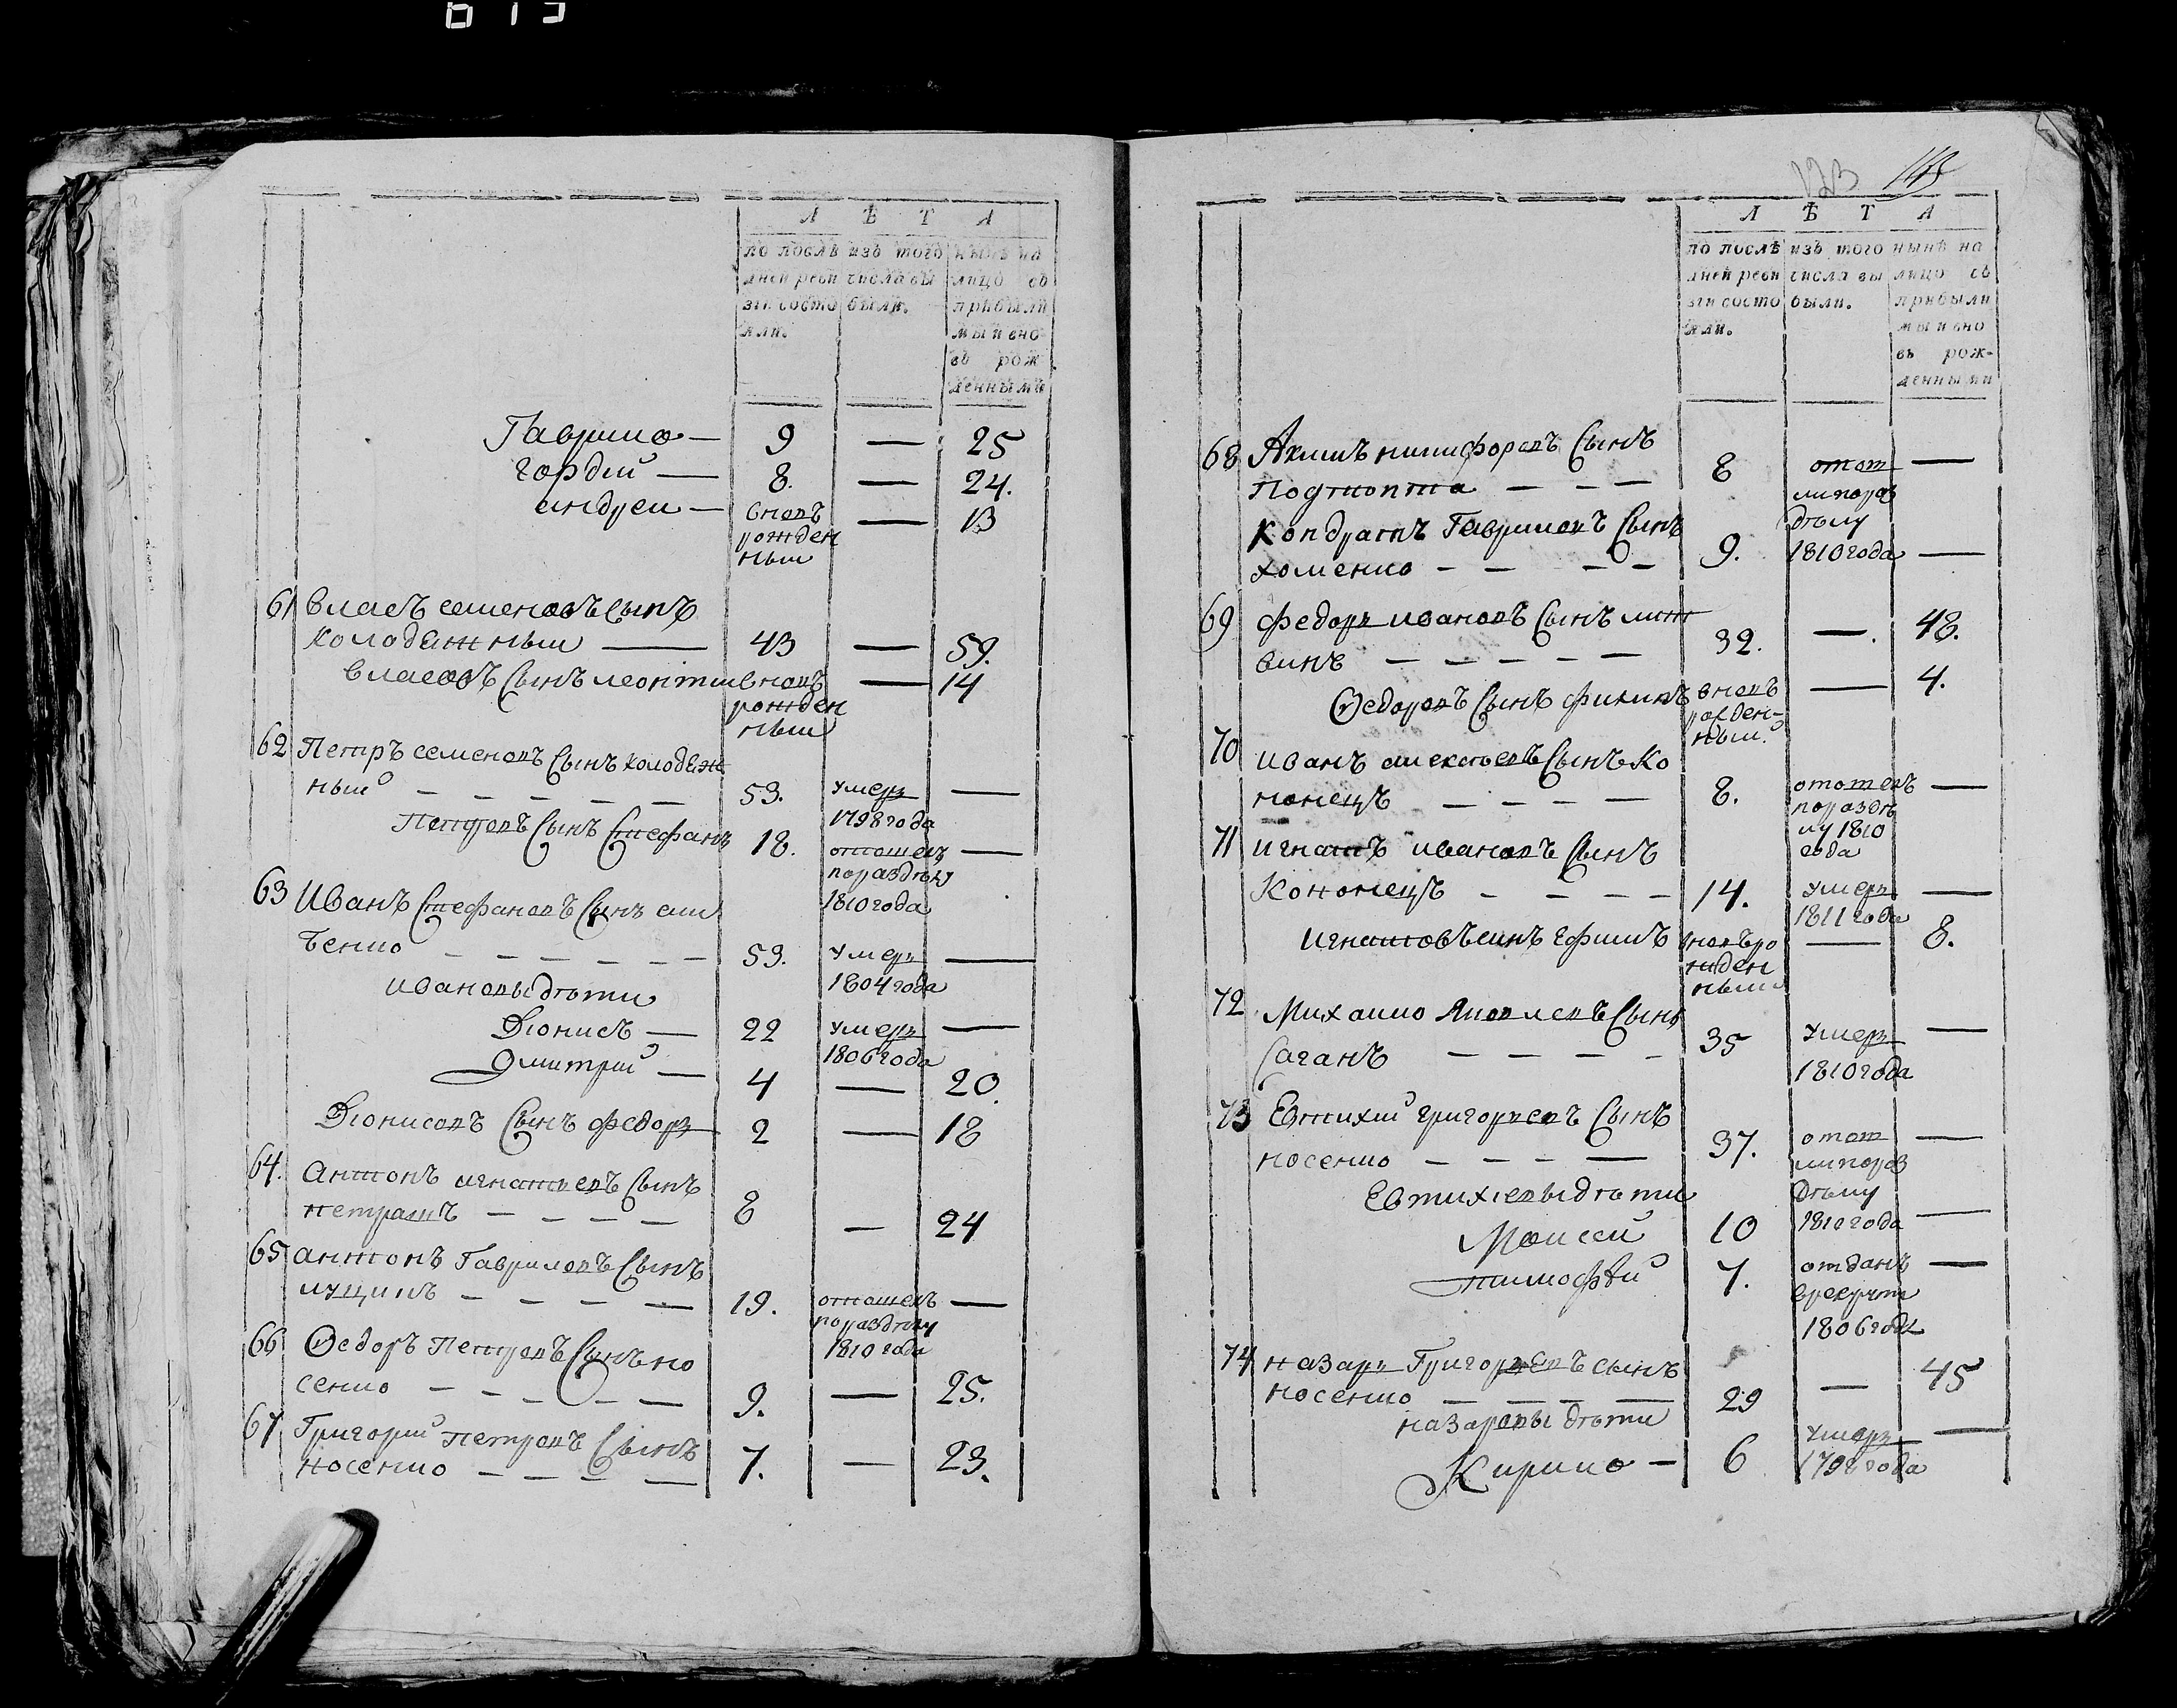 Л Ѣ Т А
по послѣ изъ того нынѣ на
дней реви числа вы лицо съ
зіи состо были. прибыли
яли. мы и вно
въ рож
денными
Гаврило — 9 — 25
гордій — 8. — 24.
андрей — вновь — 13
рожден
ный
61 власъ семеновъ сынъ
колодежный — 43 — 59.
власовъ сынъ леонтий вновь — 14
рожден
ный
62 Петръ семеновъ сынъ колодеж
ный — — — — — 53. умеръ —
1798 года
Петровъ сынъ Стефанъ 18. отошелъ —
поразделу
1810 года
63 Иванъ Стефановъ сынъ
— — — — — — 53. умеръ —
1804 года
ивановы дѣти
Діонисъ — 22 умеръ —
1806 года
Дмитрий — 4 — 20.
Діонисовъ сынъ федоръ 2 — 18
64. антонъ игнатьевъ сынъ
петрашъ — — — — 8 — 24
65 антонъ Гавриловъ сынъ
лущикъ — — — — 19. отошелъ —
поразделу
1810 года
66 Ѳедоръ Петровъ сынъ но
сенко — — — — — 9. — 25.
67 Григорий петровъ сынъ
носенко — — — — 7. — 23.
Л Ѣ Т А
по послѣ изъ того нынѣ на
дней реви числа вы лицо съ
зіи состо были. прибыли
яли. мы и вно
въ рож-
денными
68 Акимъ никифоровъ сынъ
— — — 8 отош —
ли пораз
дѣлу
Кондратъ Гавриловъ сынъ
хоменко — — — — 9. 1810 года —
69 федоръ ивановъ сынъ лит
винъ — — — — — 32. — 48.
Ѳедоровъ сынъ филипъ вновь — 4.
рожден-
ный.
70 иванъ алексѣевъ сынъ Ко
нонецъ — — — — 8. отошелъ —
пораздѣ
лу 1810
года
71 игнатъ ивановъ сынъ
Кононецъ — — — — 14. умеръ —
1811 года
игнатовъ синъ ефимъ вновь ро — 8.
жден
ный
72 Михаило Яковлевъ сынъ
Саганъ — — — — 35 умеръ —
1810 года
73 Евтихий григорьевъ сынъ
носенко — — — — 37. отош —
ли пораз
дѣлу
Евтихіевы дѣти
Моисей 10 1810 года —
тимофѣй 7. отданъ —
врекруты
1806 года
74 назаръ Григорьевъ сынъ
носенко — — — — 29 — 45
назаровы дѣти
Кирило — 6 умеръ —
1798 года